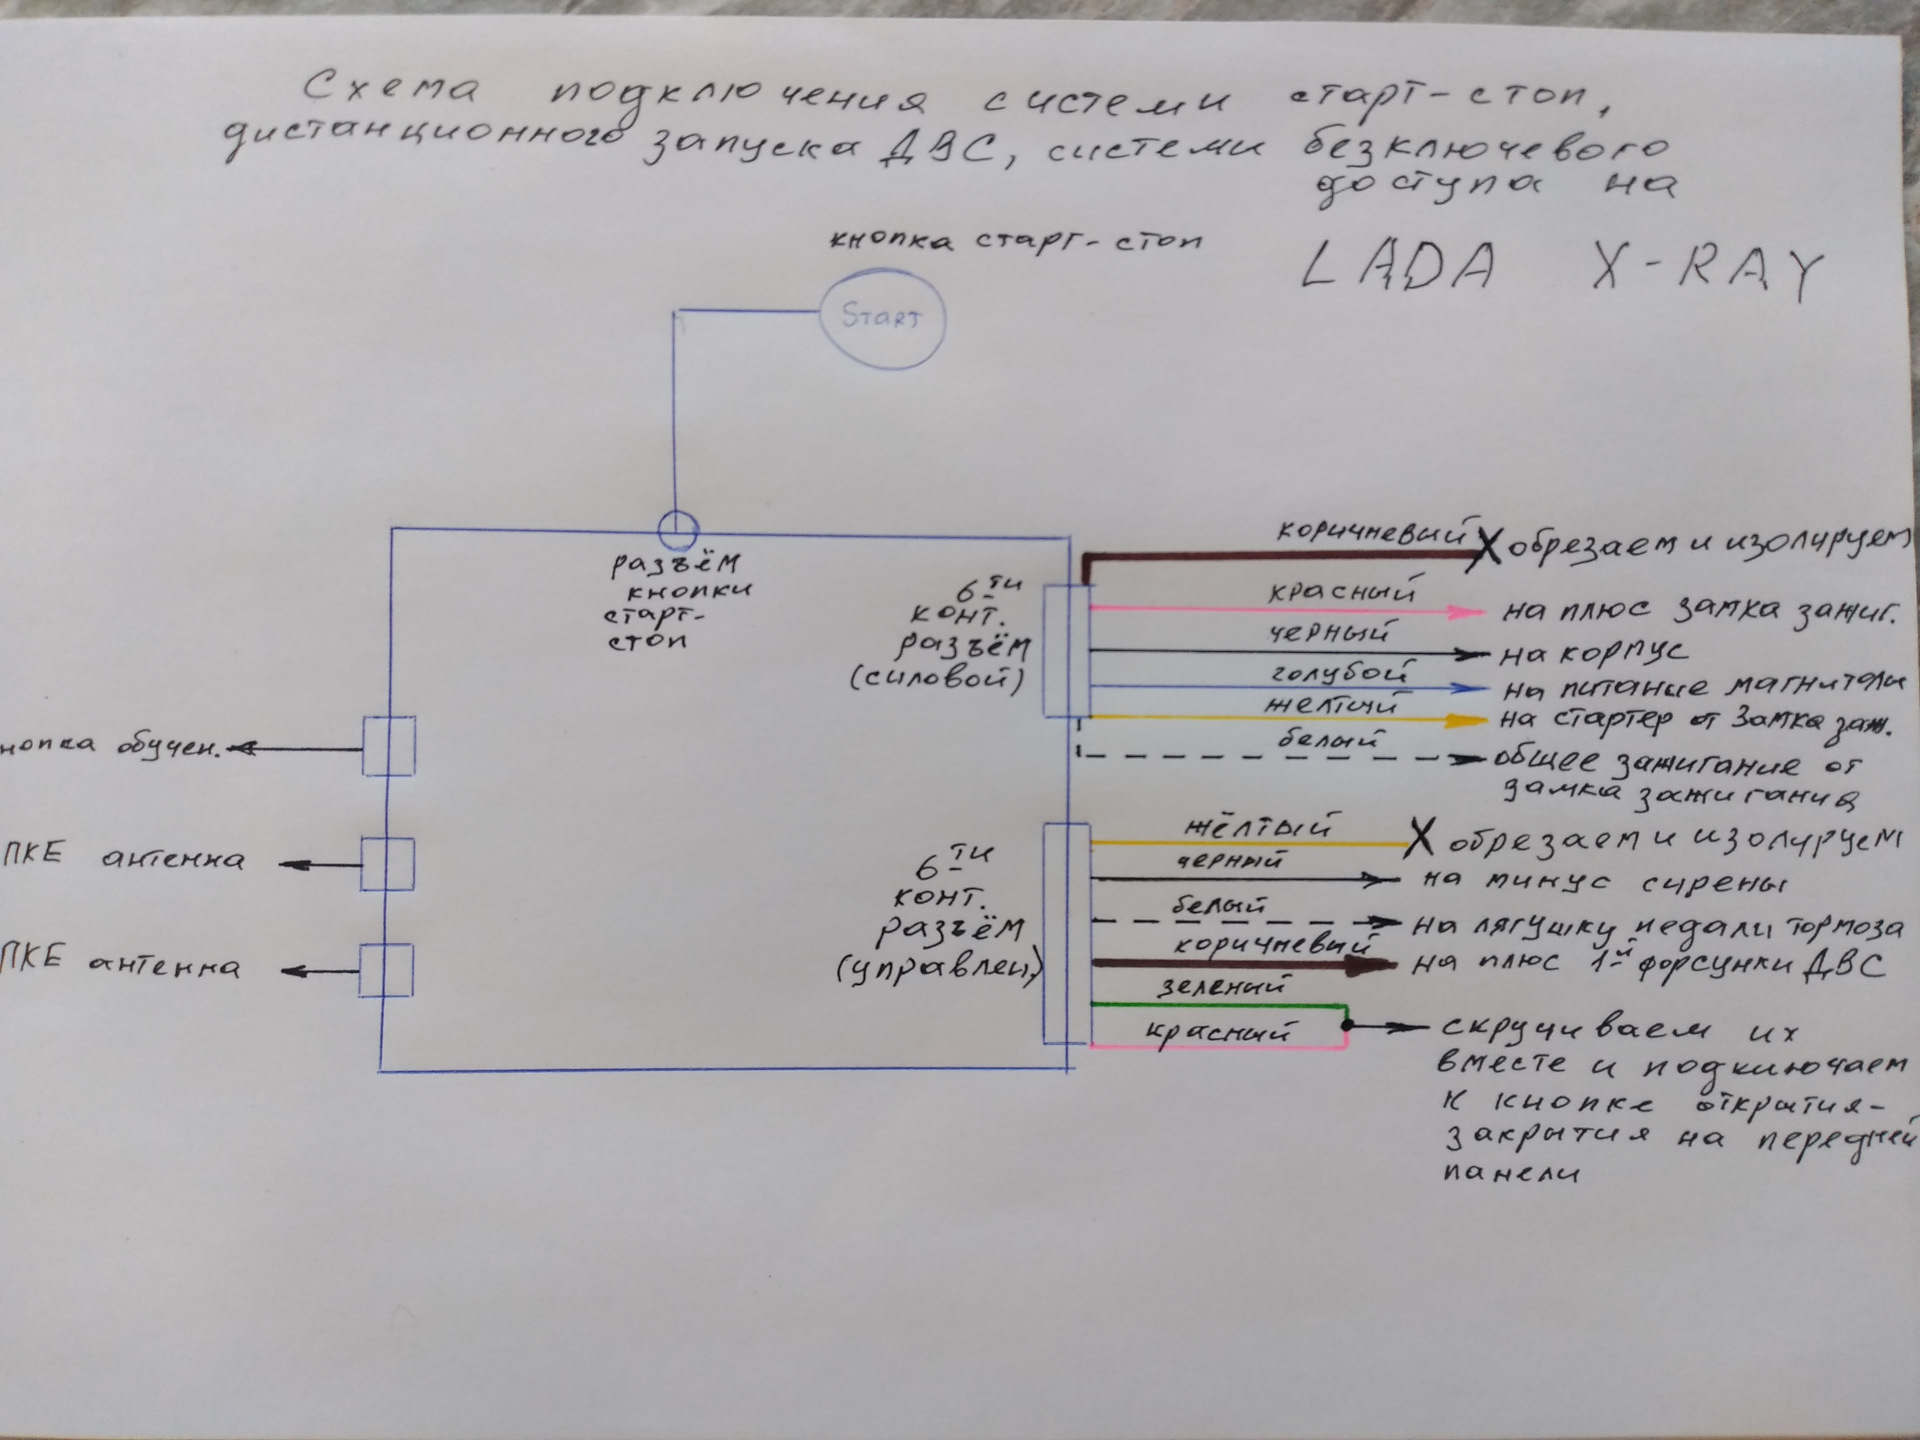 Схема подключения системи старт-стоп,
дистанционного запуска ДВС, системи безключевого
доступа на
LADA X-RAY
кнопка старт-стоп
Start
разъём
кнопки
старт-
стоп
6-ти
конт.
разъём
(силовой)
коричневый X обрезаем и изолируем
красный на плюс замка зажиг.
черный на корпус
голубой на питание магнитолы
желтый на стартер от замка заж.
белый общее зажигание от
замка зажигания
нопка обучен.
ПКЕ антенна
ПКЕ антенна
6-ти
конт.
разъём
(управлен)
жёлтый X обрезаем и изолируем
черный на минус сирены
белый на лягушку педали тормоза
коричневый на плюс 1-й форсунки ДВС
зеленый
красный скручиваем их
вместе и подключаем
к кнопке открытия-
закрытия на передней
панели